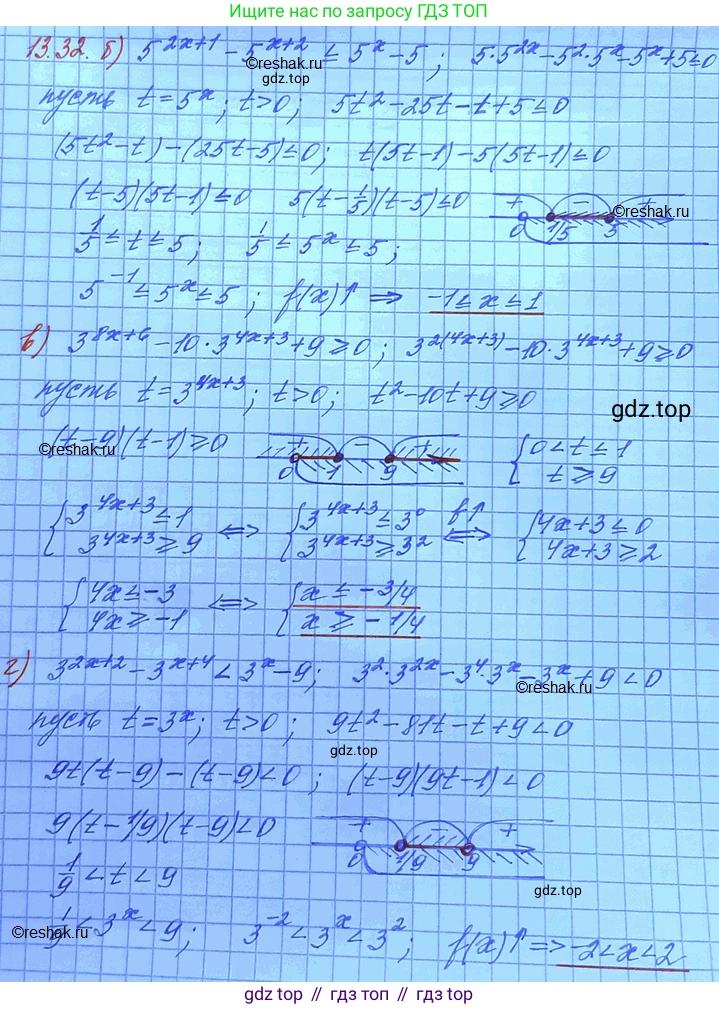 Ищите ответы по запросу ГДЗ ТОП
13.32. б) 5^{2x+1} - 5^{x+2} ≤ 5^x - 5; 5·5^{2x} - 5^2·5^x - 5^x + 5 ≤ 0
©reshak.ru
пусть t = 5^x; t > 0; 5t^2 - 25t - t + 5 ≤ 0
(5t^2 - t) - (25t - 5) ≤ 0; t(5t - 1) - 5(5t - 1) ≤ 0
(t - 5)(5t - 1) ≤ 0 5(t - 1/5)(t - 5) ≤ 0 + - +
©reshak.ru
0 1/5 5
1/5 ≤ t ≤ 5; 1/5 ≤ 5^x ≤ 5;
5^{-1} ≤ 5^x ≤ 5; f(x)↑ ⇒ -1 ≤ x ≤ 1
в) 3^{8x+6} - 10·3^{4x+3} + 9 ≥ 0; 3^{2(4x+3)} - 10·3^{4x+3} + 9 ≥ 0
пусть t = 3^{4x+3}; t > 0; t^2 - 10t + 9 ≥ 0
gdz.top
(t - 9)(t - 1) ≥ 0 + - + { 0 < t ≤ 1
©reshak.ru
0 1 9 t ≥ 9
{ 3^{4x+3} ≤ 1 ⇔ { 3^{4x+3} ≤ 3^0 f↑ ⇔ { 4x + 3 ≤ 0
3^{4x+3} ≥ 9 3^{4x+3} ≥ 3^2 4x + 3 ≥ 2
{ 4x ≤ -3 ⇔ { x ≤ -3/4
4x ≥ -1 x ≥ -1/4
г) 3^{2x+2} - 3^{x+4} < 3^x - 9; 3^2·3^{2x} - 3^4·3^x - 3^x + 9 < 0
©reshak.ru
пусть t = 3^x; t > 0; 9t^2 - 81t - t + 9 < 0
gdz.top
9t(t - 9) - (t - 9) < 0; (t - 9)(9t - 1) < 0
9(t - 1/9)(t - 9) < 0 + - +
0 1/9 9
1/9 < t < 9
gdz.top
1/9 < 3^x < 9; 3^{-2} < 3^x < 3^2; f(x)↑ => -2 < x < 2
©reshak.ru
gdz top // гдз топ // gdz top